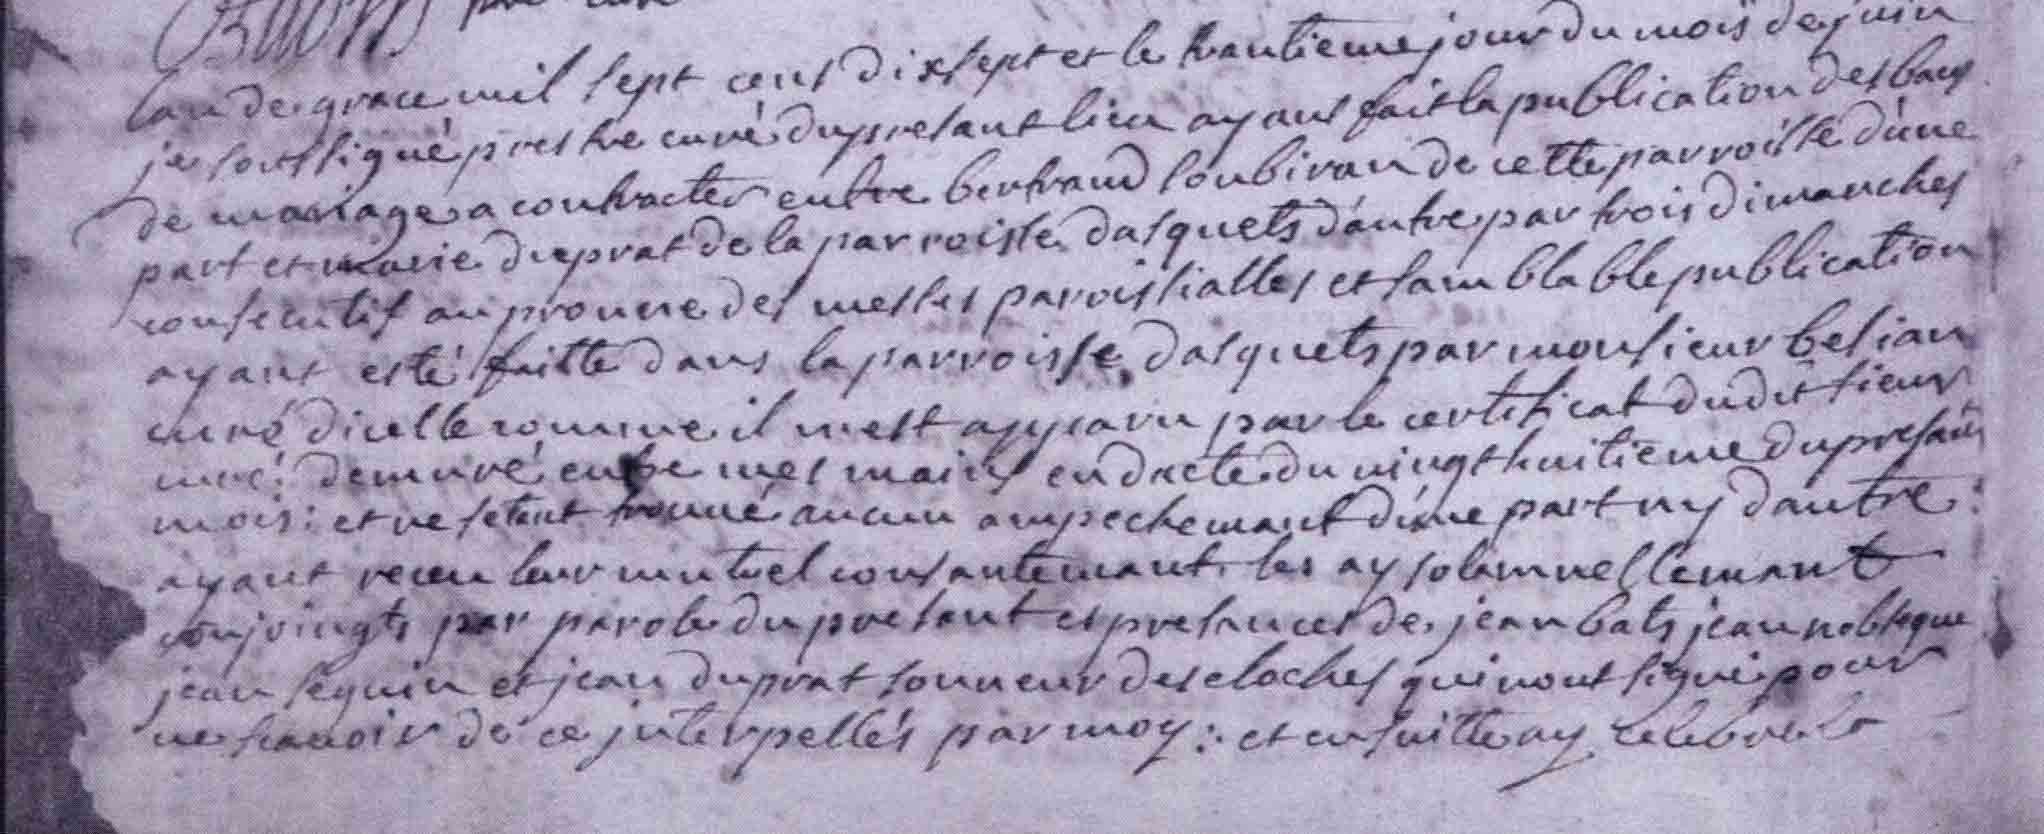 pbre curé
lan de grace mil sept cens dixsept et le trantieme jour du mois de juin
je soussigné prestre curé du presant lieu ayant fait la publication des bans
de mariage a contracter entre bertrand soubiran de cette parroisse d'une
part et marie duprat de la parroisse dasquets d'autre par trois dimanches
consecutif au prosne des messes paroissialles et samblable publication
ayant esté faitte dans la parroisse dasquets par monsieur besian
curé dicelle comme il mest apparu par le certificat dudit sieur
curé demuré entre mes mains en dacte du vingt huitieme du presant
mois : et ne setant trouvé aucun ampechemant d'une part ny dautre :
ayant receu leur mutuel consantemant les ay solamnellemant
conjoingts par parole du presant es presances de jean bats jean noblegue
jean seguin et jean duprat sonneur des cloches qui nont signé pour
ne scavoir de ce jnterpellés par moy : et ensuitte ay celebré la